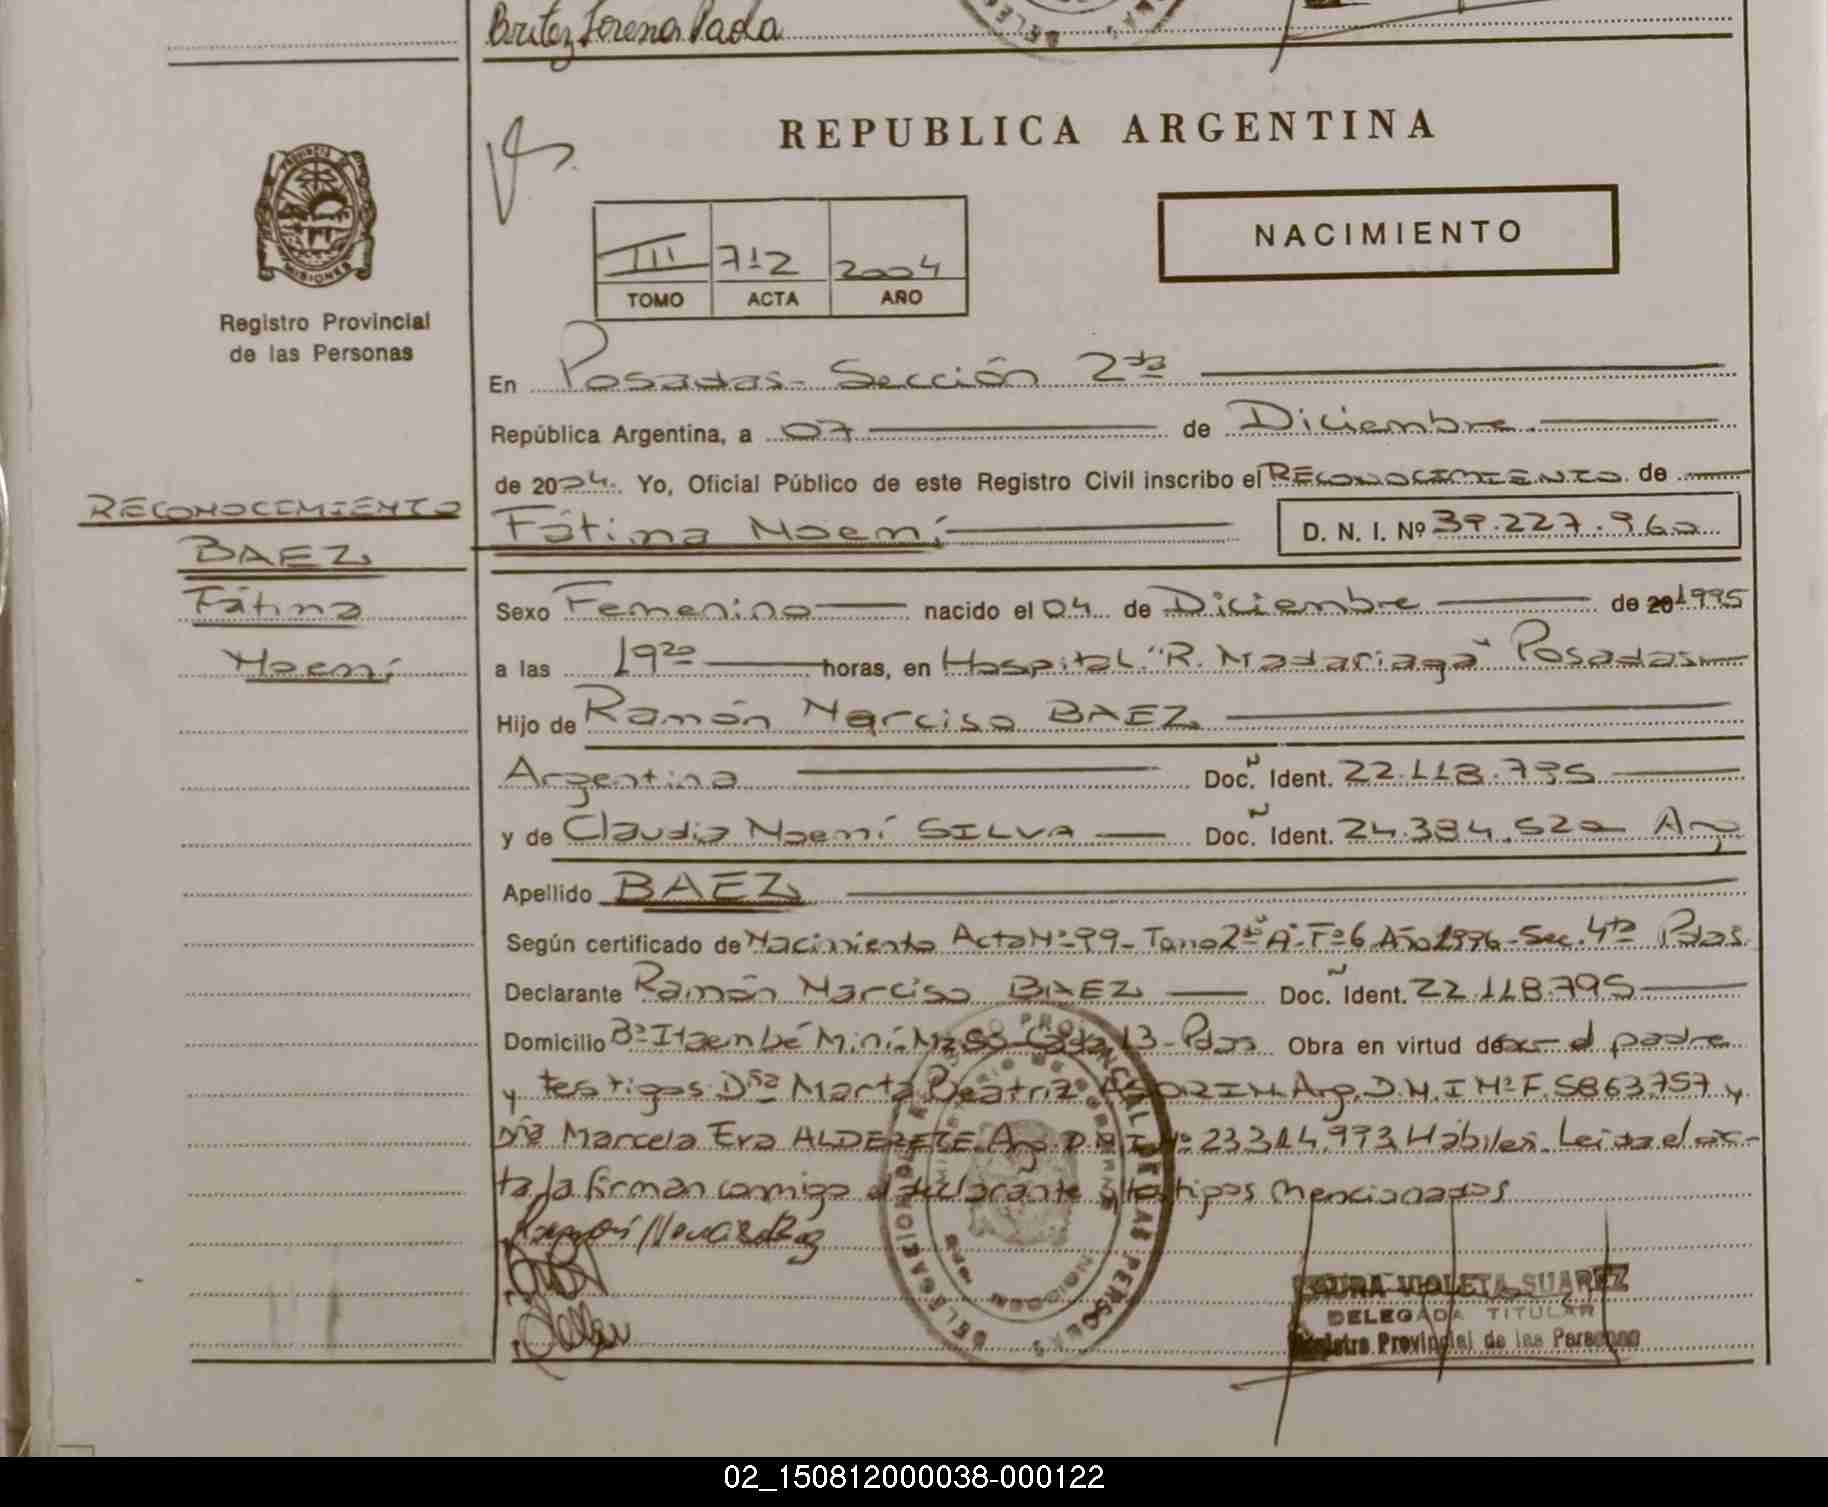 Britez Lorena Paola
PROVINCIA DE MISIONES
Registro Provincial
de las Personas
REPUBLICA ARGENTINA
NACIMIENTO
III 712 2004
TOMO ACTA AÑO
En Posadas - Sección 2da
República Argentina, a 07 de Diciembre
de 2004. Yo, Oficial Público de este Registro Civil inscribo el RECONOCIMIENTO de
RECONOCIMIENTO
Fátima Noemí D. N. I. Nº 39.227.960
BAEZ
Fátima
Noemí
Sexo Femenino nacido el 04 de Diciembre de 20 1995
a las 19 20 horas, en Hospital "R. Madariaga" Posadas
Hijo de Ramón Narciso BAEZ
Argentina Doc. Ident. 22.118.795
y de Claudia Noemí SILVA Doc. Ident. 24.384.520 Arg
Apellido BAEZ
Según certificado de Nacimiento Acta Nº 99 - Tomo 2do "A" Fº 6 Año 1996 - Sec. 4ta Pdas.
Declarante Ramón Narciso BAEZ Doc. Ident. 22.118.795
Domicilio Bº Itaembé Miní - Mz Casa 13 - Pdas Obra en virtud de ser el padre
y testigos Dña Marta Beatriz Arg. D.N.I Nº F.5863.757 y
Dña Marcela Eva ALDERETE Arg. D.N.I Nº 23.314.973 Hábiles. Leída el ac-
ta, la firman conmigo el declarante y testigos mencionados
DELEGACION REGISTRO PROVINCIAL DE LAS PERSONAS
VIOLETA SUAREZ
DELEGADA TITULAR
Registro Provincial de las Personas
02_150812000038-000122